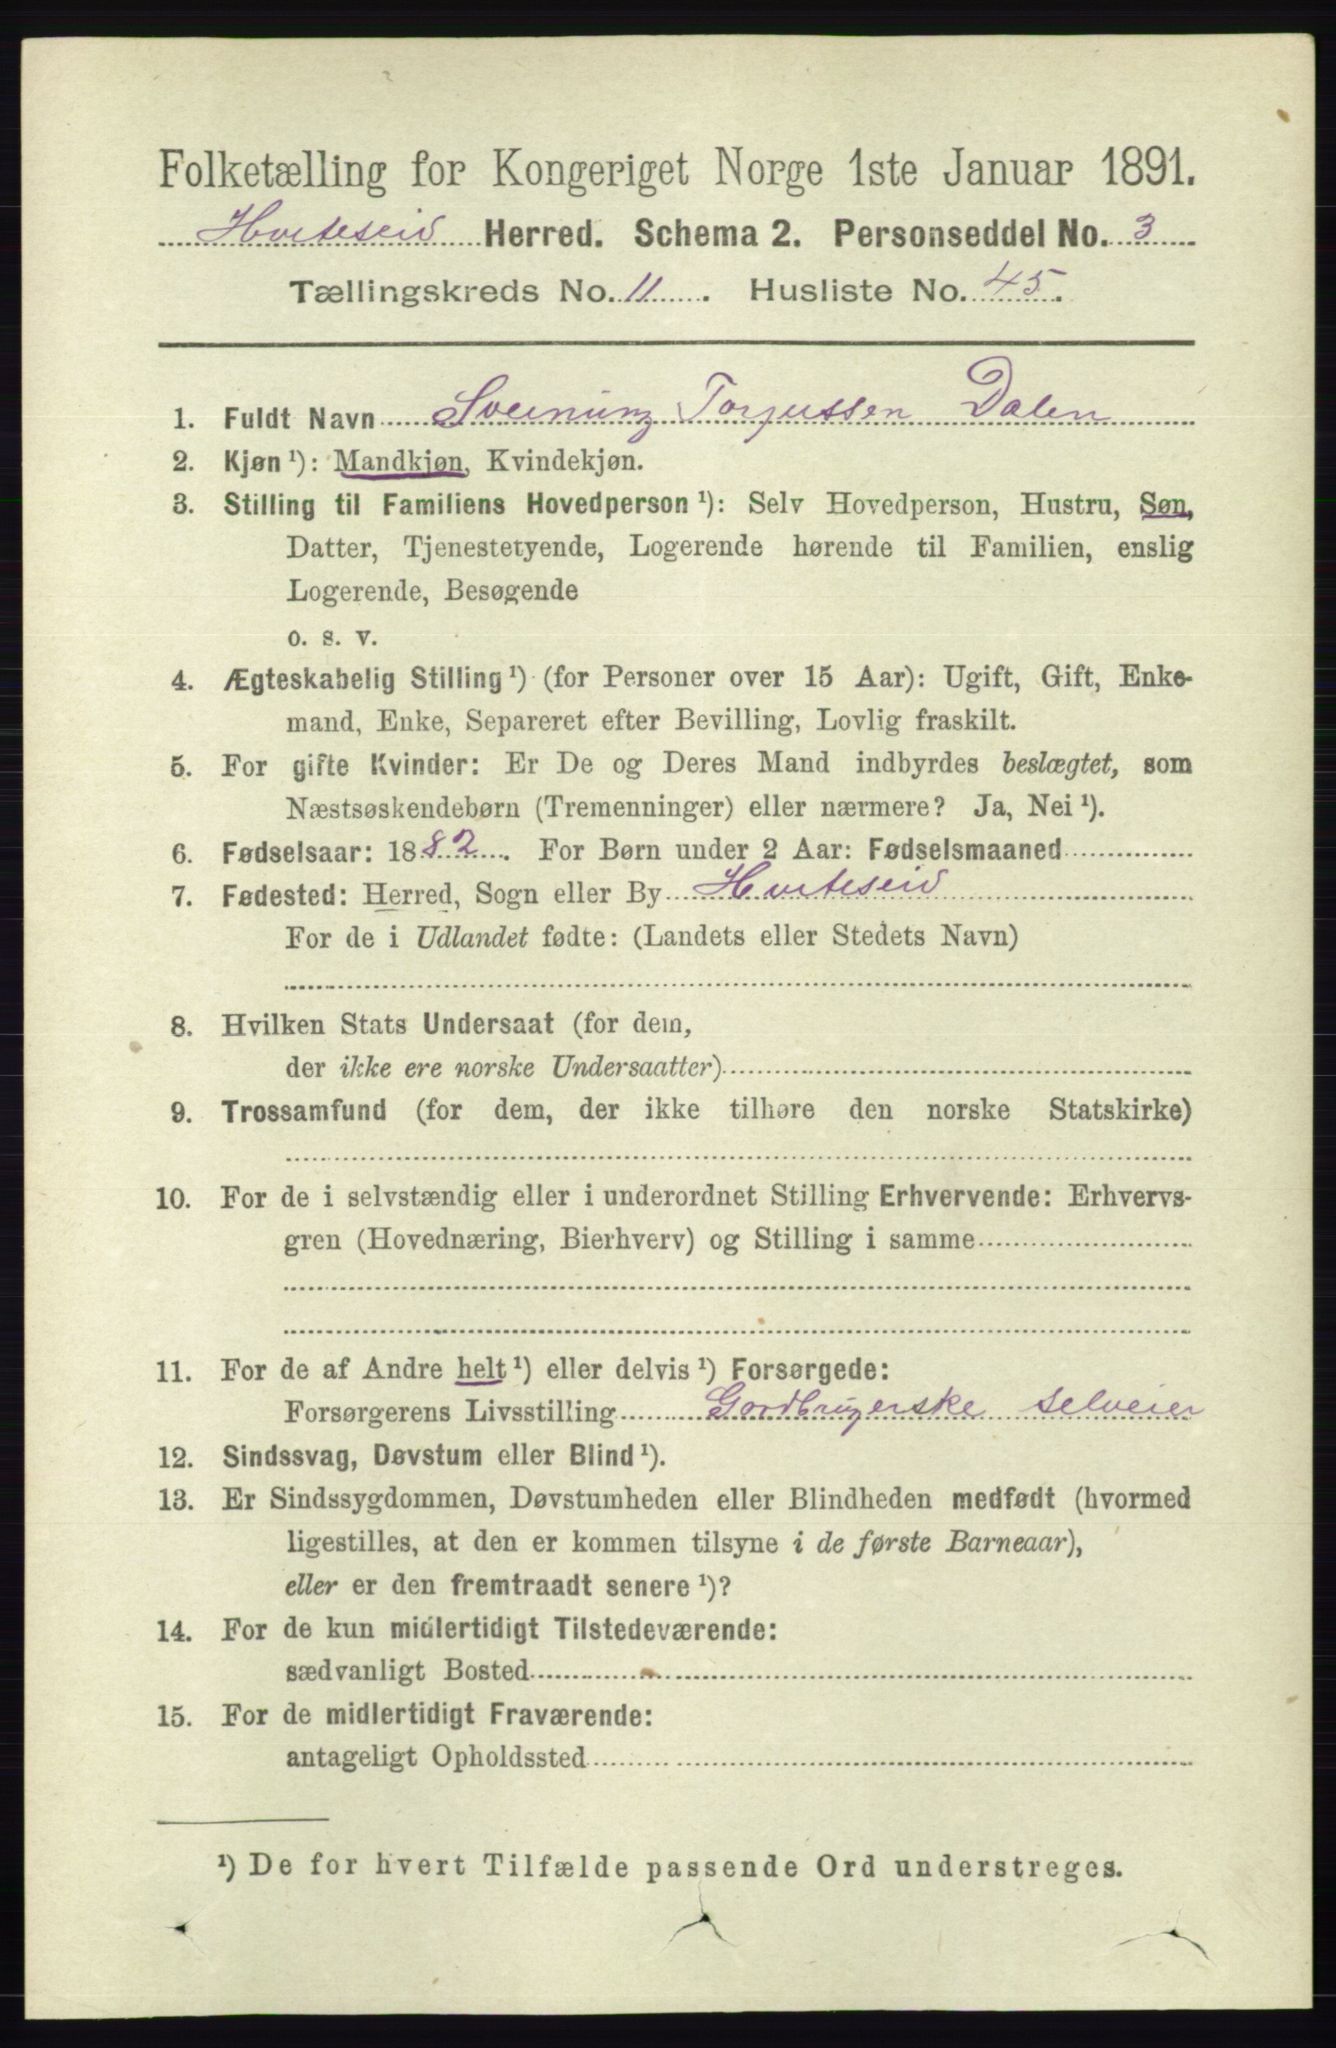 Folketælling for Kongeriget Norge 1ste Januar 1891.
Hviteseid Herred. Schema 2. Personseddel No. 3
Tællingskreds No. 11. Husliste No. 45.
1. Fuldt Navn Sveinung Torjussen Dalen
2. Kjøn ¹): Mandkjøn, Kvindekjøn.
3. Stilling til Familiens Hovedperson ¹): Selv Hovedperson, Hustru, Søn,
Datter, Tjenestetyende, Logerende hørende til Familien, enslig
Logerende, Besøgende
o. s. v.
4. Ægteskabelig Stilling ¹) (for Personer over 15 Aar): Ugift, Gift, Enke-
mand, Enke, Separeret efter Bevilling, Lovlig fraskilt.
5. For gifte Kvinder: Er De og Deres Mand indbyrdes beslægtet, som
Næstsøskendebørn (Tremenninger) eller nærmere? Ja, Nei ¹).
6. Fødselsaar: 1882. For Børn under 2 Aar: Fødselsmaaned
7. Fødested: Herred, Sogn eller By Hviteseid
For de i Udlandet fødte: (Landets eller Stedets Navn)
8. Hvilken Stats Undersaat (for dem,
der ikke ere norske Undersaatter)
9. Trossamfund (for dem, der ikke tilhøre den norske Statskirke)
10. For de i selvstændig eller i underordnet Stilling Erhvervende: Erhvervs-
gren (Hovednæring, Bierhverv) og Stilling i samme
11. For de af Andre helt ¹) eller delvis ¹) Forsørgede:
Forsørgerens Livsstilling Gardbrugerske selveier
12. Sindssvag, Døvstum eller Blind ¹).
13. Er Sindssygdommen, Døvstumheden eller Blindheden medfødt (hvormed
ligestilles, at den er kommen tilsyne i de første Barneaar),
eller er den fremtraadt senere ¹)?
14. For de kun midlertidigt Tilstedeværende:
sædvanligt Bosted
15. For de midlertidigt Fraværende:
antageligt Opholdssted
¹) De for hvert Tilfælde passende Ord understreges.